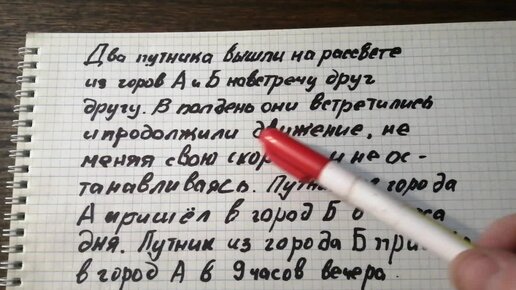 Два путника вышли на рассвете
из горов А и Б навстречу друг
другу. В полдень они встретились
и продолжили движение, не
меняя свою и не ос-
танавливаясь. города
А пришёл в город Б
дня. Путник из города Б
в город А в 9 часов вечера.